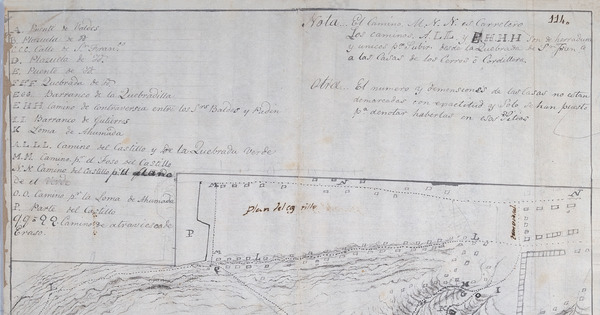 114.
A. Puente de Valdes
B. Plazuela de
CCC. Calle de Sn. Fran.co
D. Plazuela de
E. Puente de
FFF Quebrada de
GGG. Barranco de la Quebradilla
HHH Camino de Controversia entre los S.res Baldes y Pad.n
I I Barranco de Gutierrs
K Loma de Ahumada
A.L.L.L. Camino del Castillo y de La Quebrada Verde
M.N. Camino p.a el foso del Castillo
N.N. Camino del Castillo p.a
de el
O.O. Camino p.a la Loma de Ahumada
P. Parte del Castillo
QQ=QQ Camino q atraviesa de
Nota... El Camino M. N. N. es Carretero
Los caminos, A. L. L. y HHHH son de herradura
y unicos p.a subir desde la Quebrada de Sn. Juan
a las Casas de los Cerros ó Cordillera.
Otra... El numero y dimensiones de las Casas no estan
demarcadas con exactitud y solo se han puesto
p.a denotar haberlas en esos Sitios
M
N
N
P
Q
L
L
I